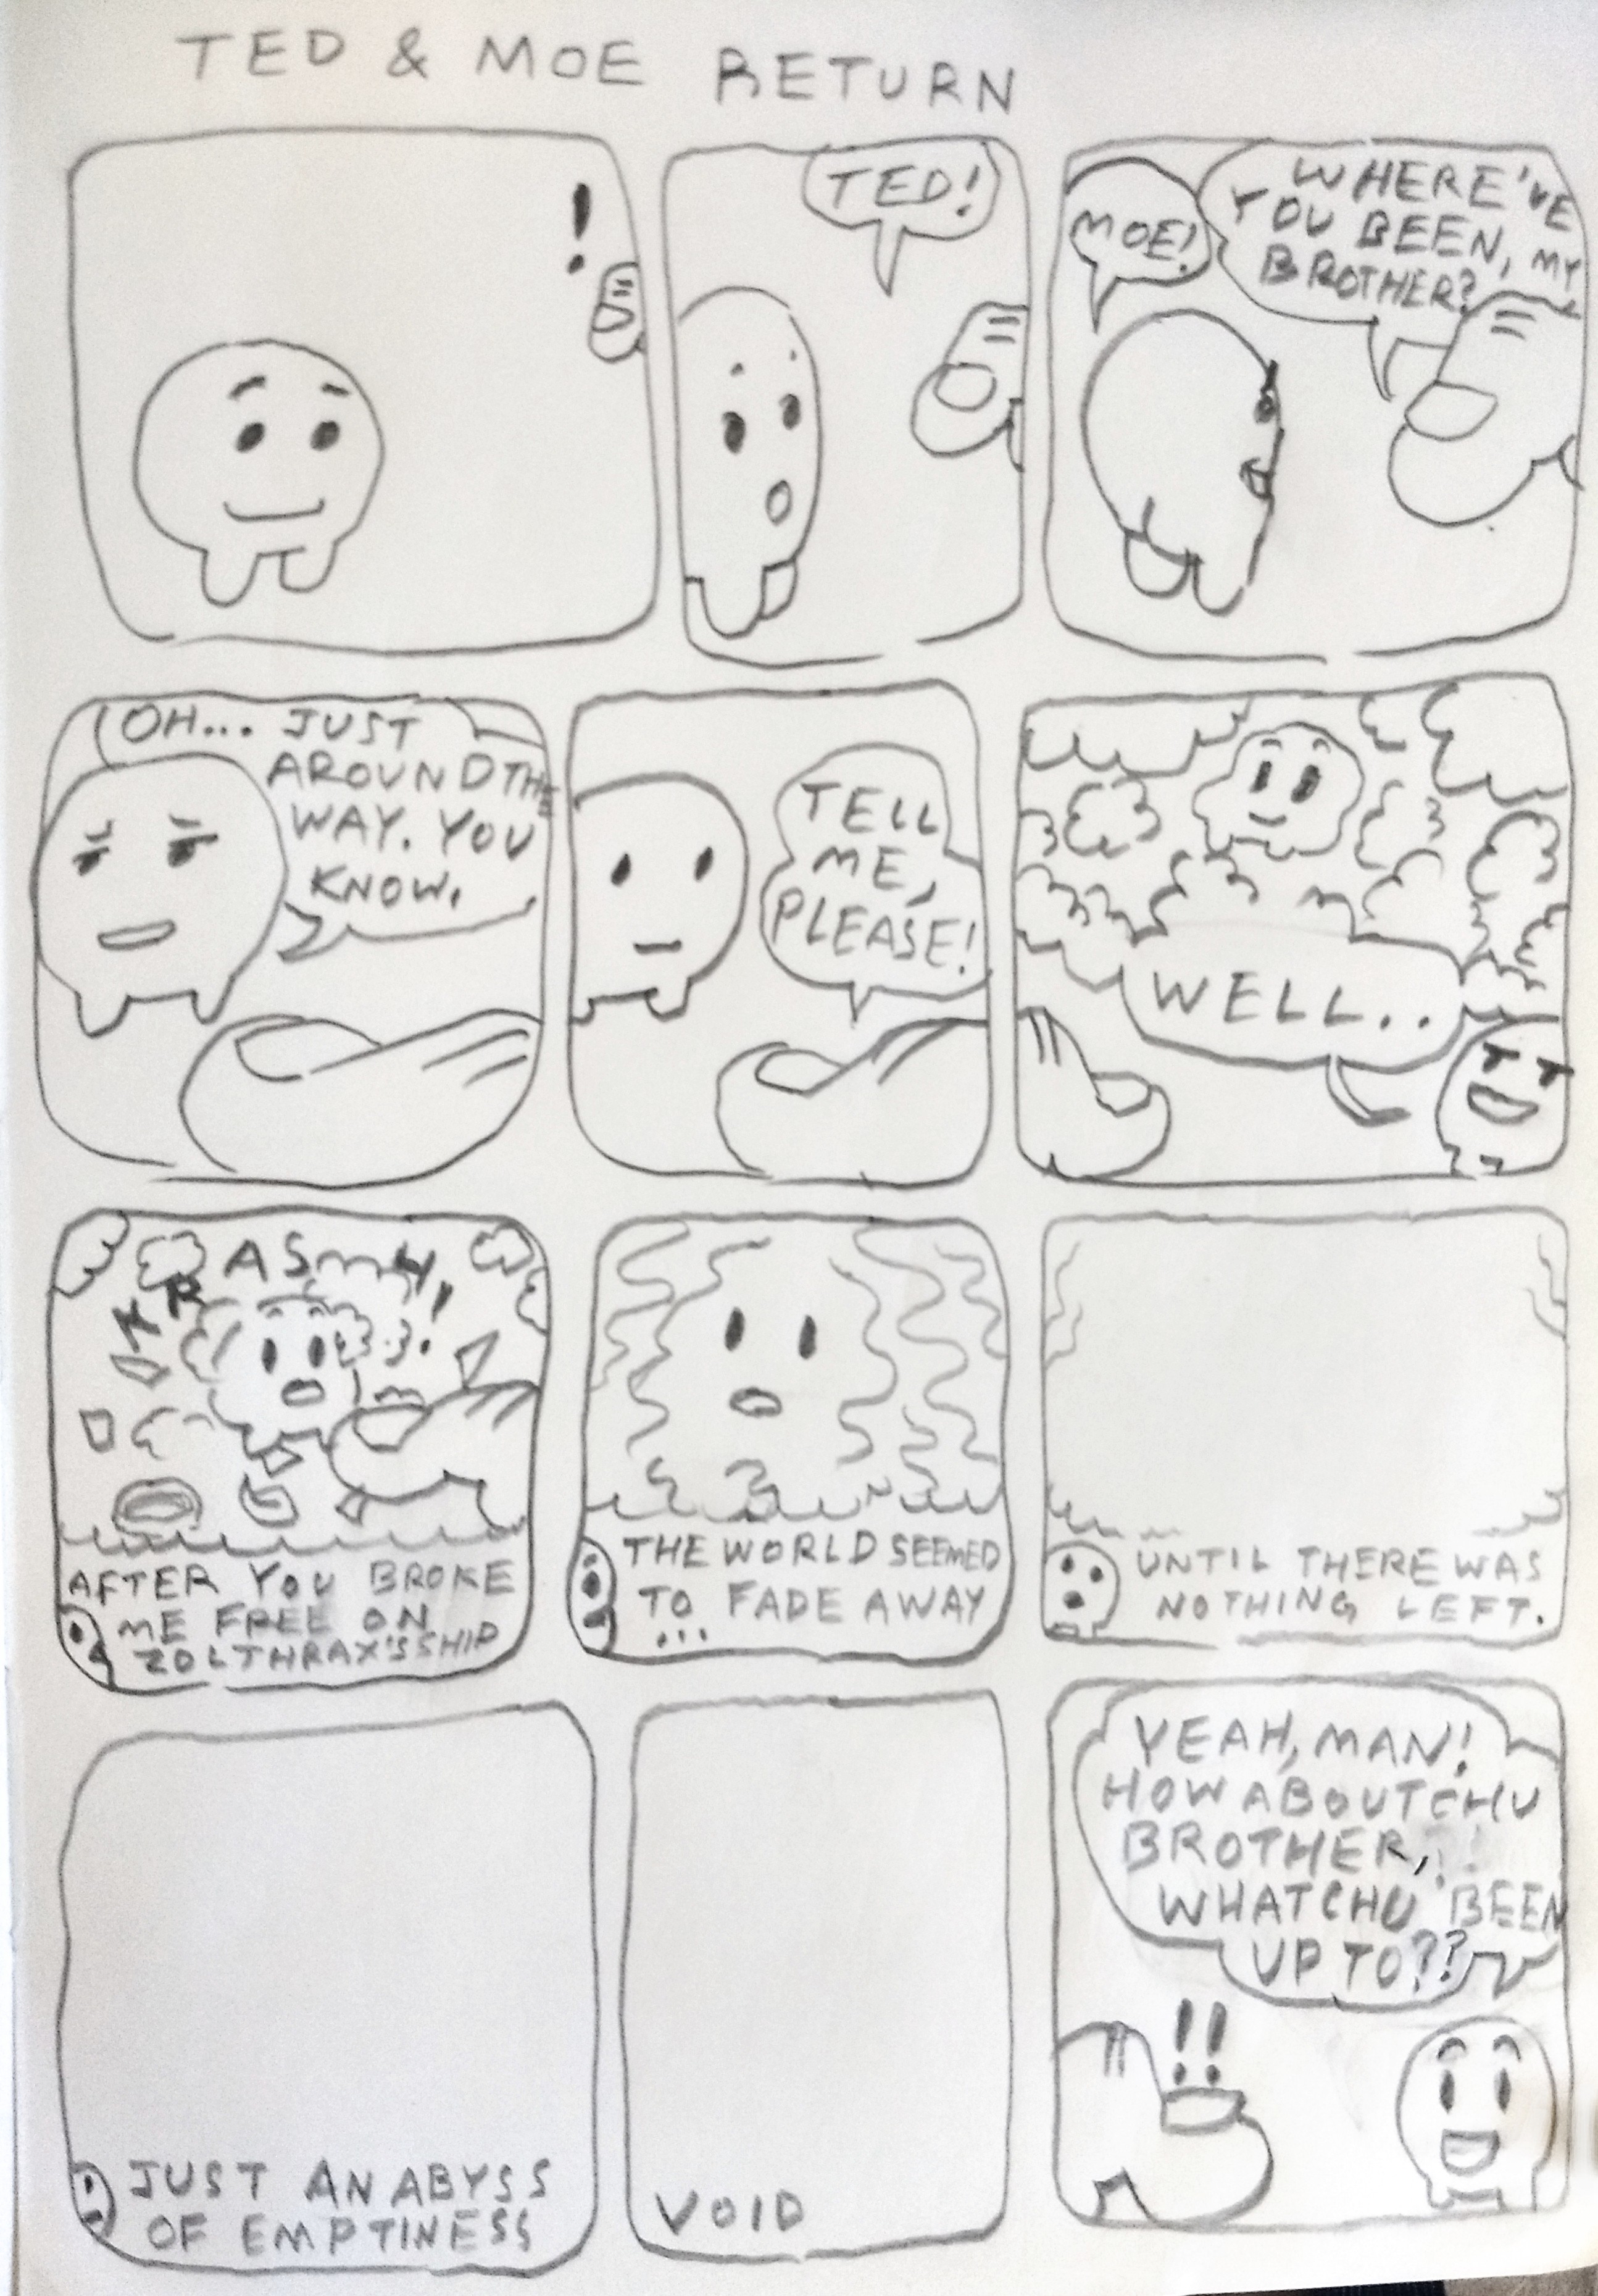 TED & MOE RETURN
!
TED!
MOE!
WHERE'VE
YOU BEEN, MY
BROTHER?
OH... JUST
AROUND THE
WAY. YOU
KNOW.
TELL
ME,
PLEASE!
WELL..
AFTER YOU BROKE
ME FREE ON
ZOLTHRAX'S SHIP
THE WORLD SEEMED
TO FADE AWAY
...
UNTIL THERE WAS
NOTHING LEFT.
JUST AN ABYSS
OF EMPTINESS
VOID
YEAH, MAN!
HOW ABOUTCHU
BROTHER,
WHATCHU BEEN
UP TO??
!!